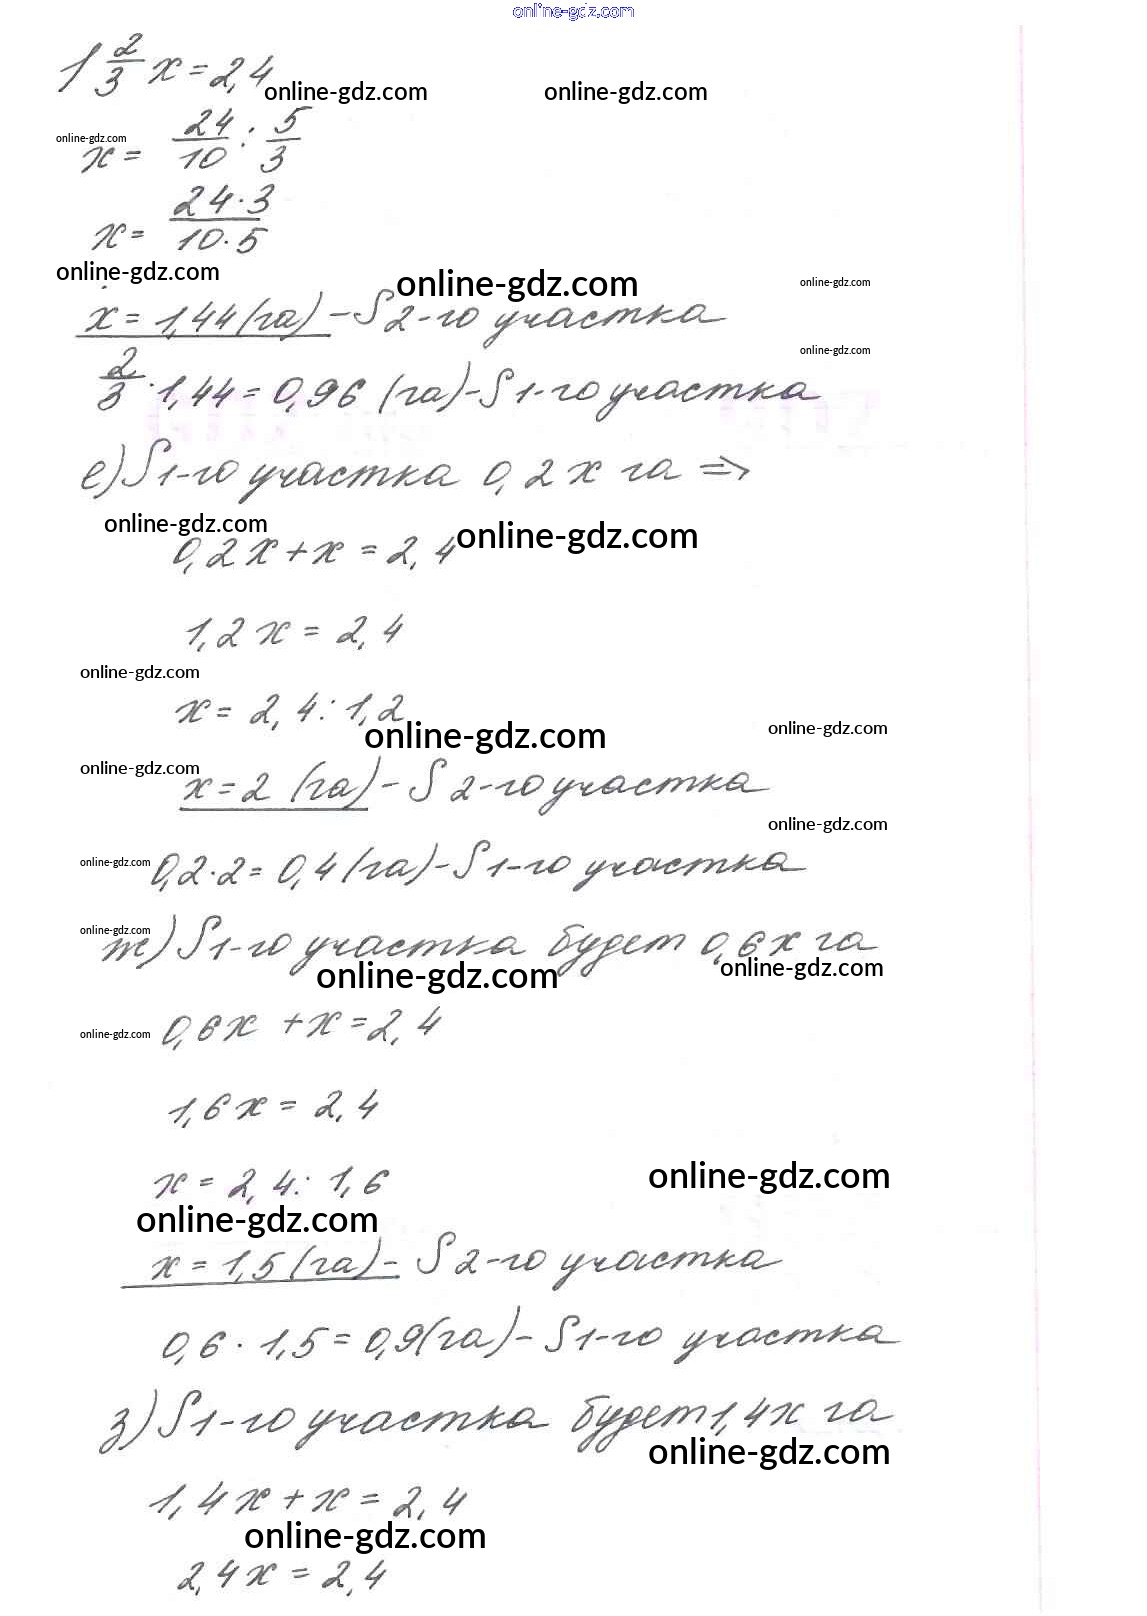 online-gdz.com
1 2/3 x = 2,4
online-gdz.com online-gdz.com
online-gdz.com
x = 24/10 : 5/3
x = 24·3/10·5
online-gdz.com
online-gdz.com online-gdz.com
x = 1,44 (га) - S 2-го участка
online-gdz.com
2/3 · 1,44 = 0,96 (га) - S 1-го участка
е) S 1-го участка 0,2 x га ⇒
online-gdz.com online-gdz.com
0,2 x + x = 2,4
1,2 x = 2,4
online-gdz.com
x = 2,4 : 1,2
online-gdz.com online-gdz.com
online-gdz.com
x = 2 (га) - S 2-го участка
online-gdz.com
online-gdz.com
0,2 · 2 = 0,4 (га) - S 1-го участка
online-gdz.com
ж) S 1-го участка будет 0,6 x га
online-gdz.com online-gdz.com
online-gdz.com
0,6 x + x = 2,4
1,6 x = 2,4
x = 2,4 : 1,6
online-gdz.com
online-gdz.com
x = 1,5 (га) - S 2-го участка
0,6 · 1,5 = 0,9 (га) - S 1-го участка
з) S 1-го участка будет 1,4 x га
online-gdz.com
1,4 x + x = 2,4
online-gdz.com
2,4 x = 2,4